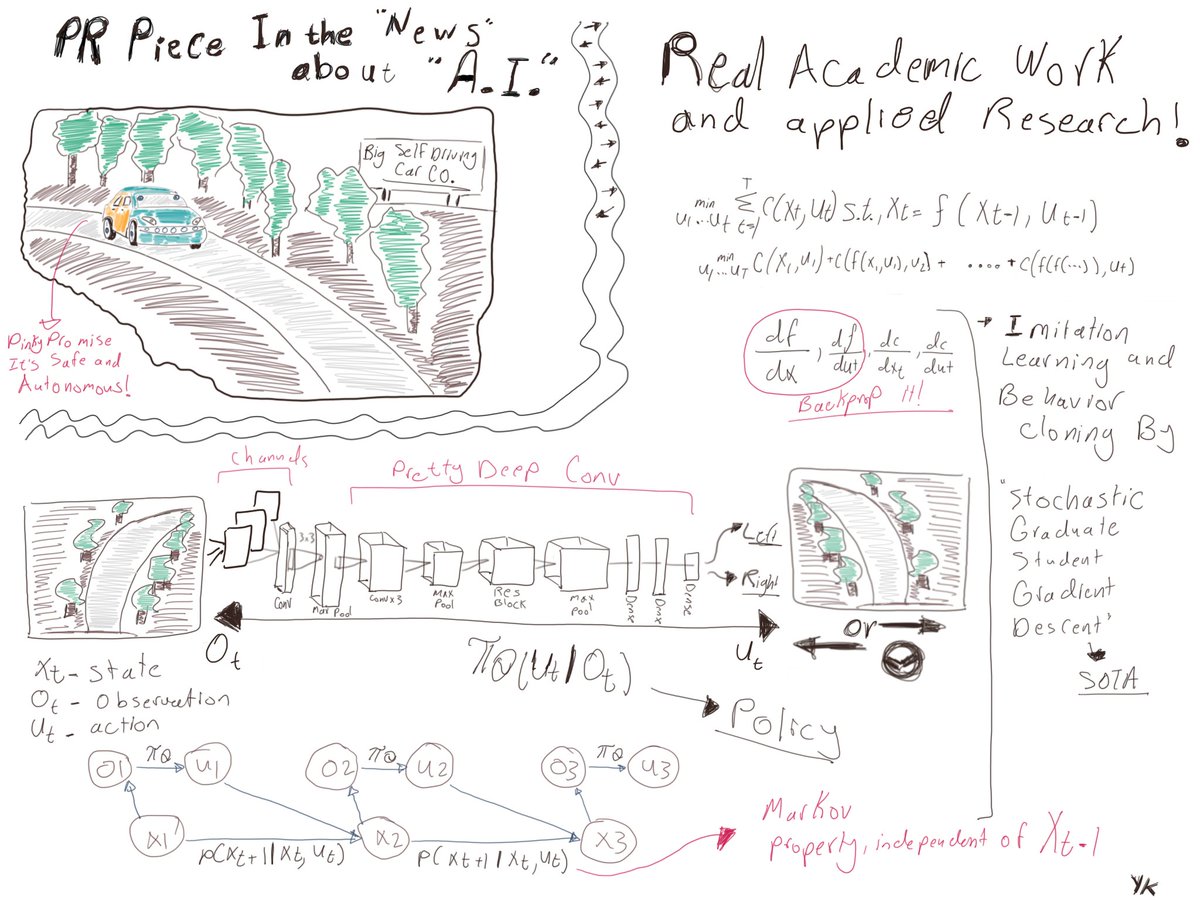 PR Piece In the "News"
about "A.I."
Big Self Driving
Car CO.
Pinky Promise
It's Safe and
Autonomous!
Real Academic Work
and applied Research!
min u1...ut T∑t=1 C(xt, ut) s.t., xt = f(xt-1, ut-1)
min u1...uT C(x1, u1) + C(f(x1, u1), u2) + .... + C(f(f(...)), ut)
df/dx, df/dut, dc/dxt, dc/dut
Backprop It!
Imitation
Learning and
Behavior
Cloning By
"Stochastic
Graduate
Student
Gradient
Descent"
SOTA
Channels
Pretty Deep Conv
3x3
Conv
Max Pool
Convx3
Max
Pool
Res
Block
Max
Pool
Dense
Dense
Dense
Left
Right
or
Ot
πθ(ut|Ot)
ut
Policy
xt - state
Ot - Observation
ut - action
O1 πθ u1
O2 πθ u2
O3 πθ u3
x1 p(xt+1|xt, ut) x2 p(xt+1|xt, ut) x3
Markov
property, independent of xt-1
YK